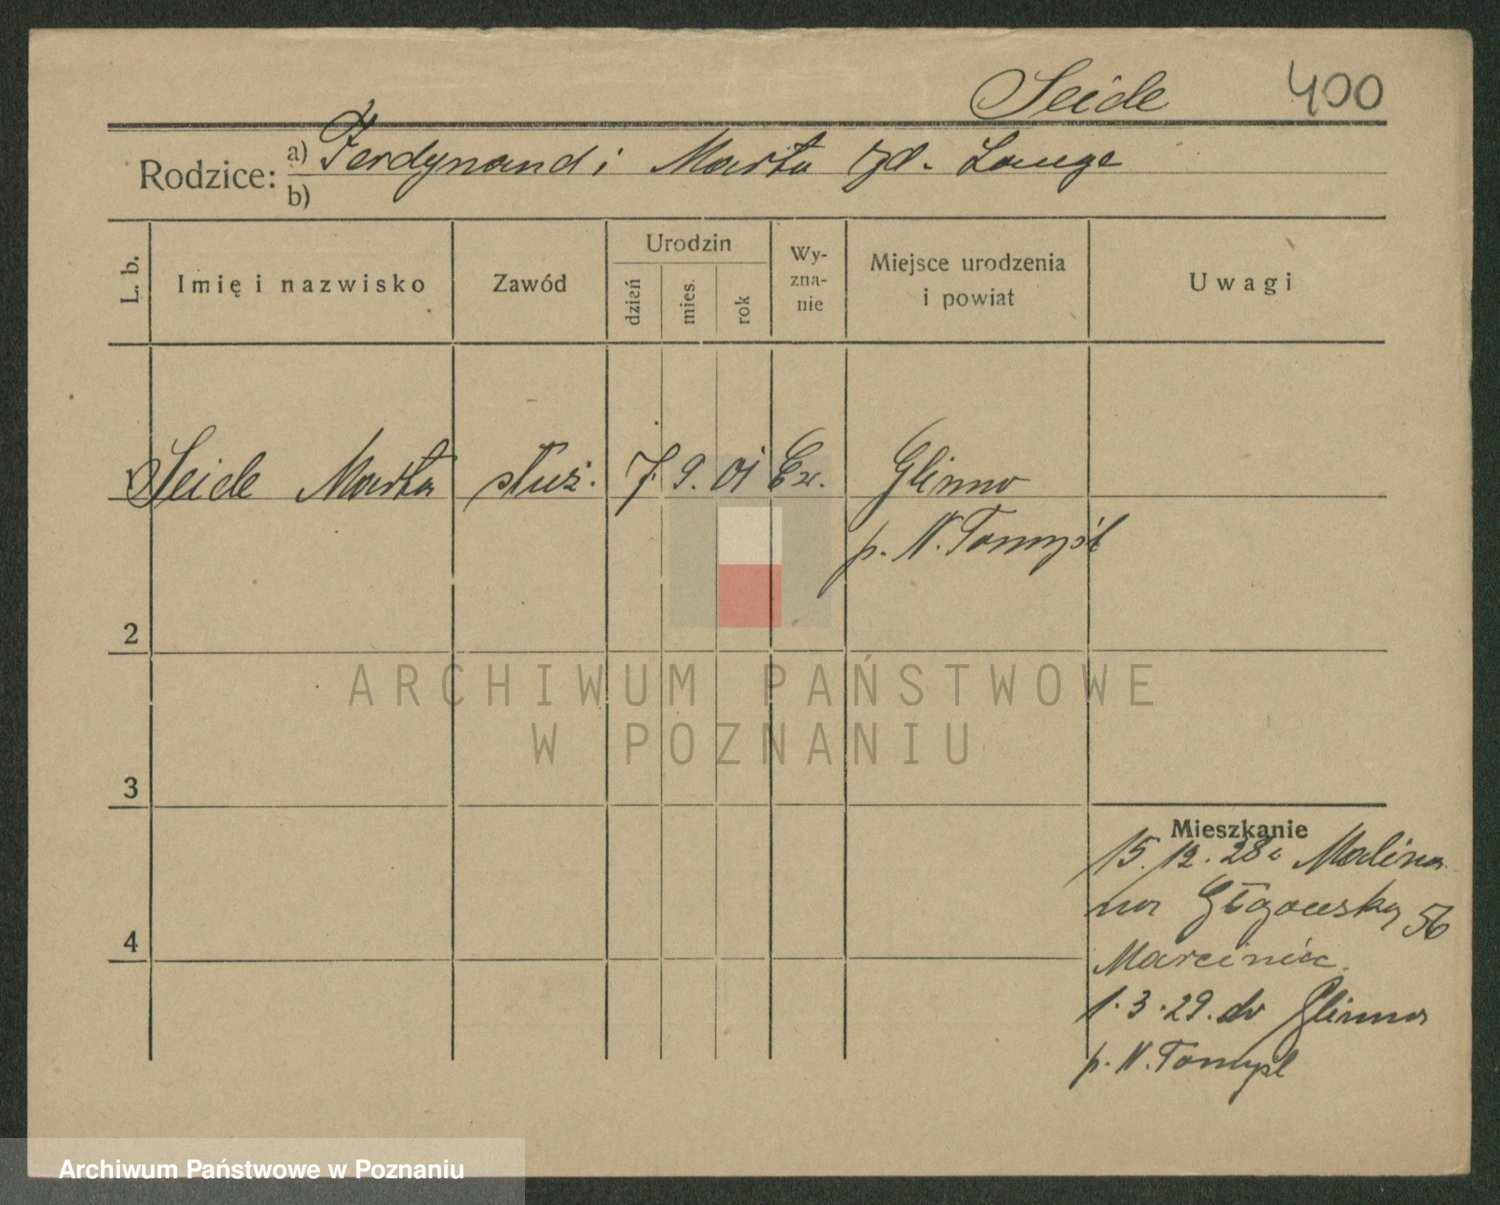 Seide 400
Rodzice: a) Ferdynand i Marta zd. Lange
b)
L. b. Imię i nazwisko Zawód Urodzin dzień mies. rok Wy-zna-nie Miejsce urodzenia i powiat Uwagi
Seide Marta służ. 7. 9. 01 Ew. Glinno
p. N. Tomyśl
2
ARCHIWUM PAŃSTWOWE
W POZNANIU
3
Mieszkanie
15.12.28 z Malina
na Głogowska 56
Marciniak
4
1.3.29. do Glinna
p. N. Tomyśl
Archiwum Państwowe w Poznaniu